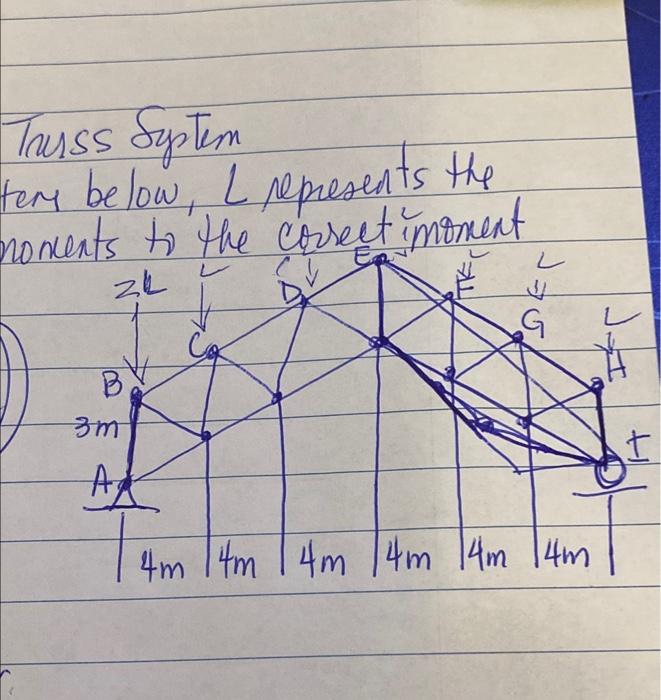 Truss System
tem below, L represents the
moments to the correct moment
2L L L E L L
D F
G L
C
B H
3m
A I
4m 4m 4m 4m 4m 4m